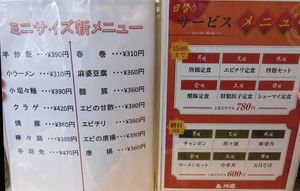 ミニサイズ新メニュー
半炒飯・・・¥390円
小ラーメン・・¥310円
小坦々麺・・¥390円
クラゲ・・・¥420円
焼豚・・・¥360円
棒々鶏・・・¥380円
手羽先・・・¥470円
春巻・・・¥310円
麻婆豆腐・・¥360円
酢豚・・・¥360円
エビの甘酢・・¥380円
エビチリ・・・¥380円
エビの唐揚・・¥390円
唐揚・・・¥360円
日替り
サービス メニュー
15:00まで
月曜 火曜 水曜
唐揚定食 エビチリ定食 炒飯セット
木曜 金曜
酢豚定食 特製餃子定食 シューマイ定食
780円
終日OK
チャンポン 担々麺 麻婆丼
ラーメンセット 中華丼
600円